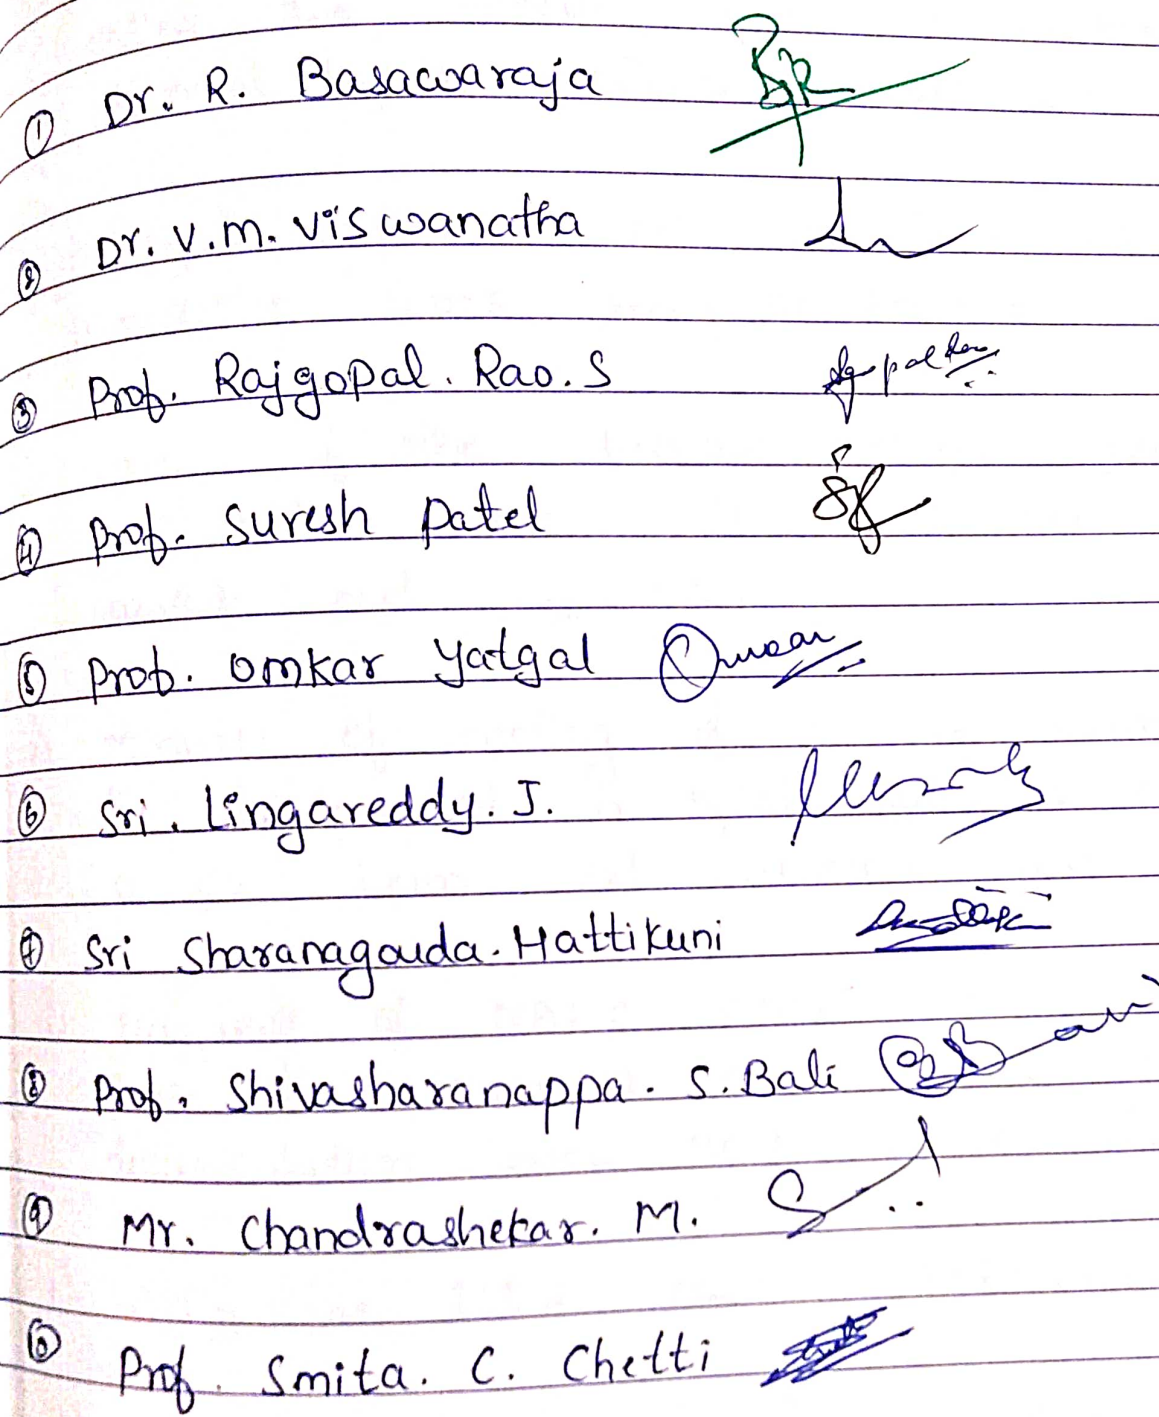 ① Dr. R. Basawaraja
② Dr. V.M. Viswanatha
③ Prof. Rajgopal. Rao. S
④ Prof. Suresh Patel
⑤ Prof. Omkar Yatgal
⑥ Sri. Lingareddy. J.
⑦ Sri Sharanagouda. Hattikuni
⑧ Prof. Shivasharanappa. S. Bali
⑨ Mr. Chandrashekar. M.
⑩ Prof. Smita. C. Chetti